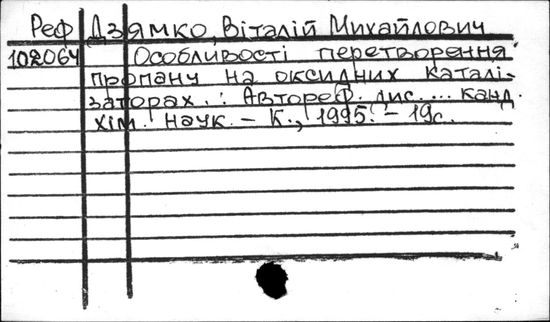 Реф Дзямко, Віталій Михайлович
102064 Особливості перетворення
пропану на оксидних каталі-
заторах.: Автореф. дис. ... канд.
хім. наук. - К., 1995. - 19с.